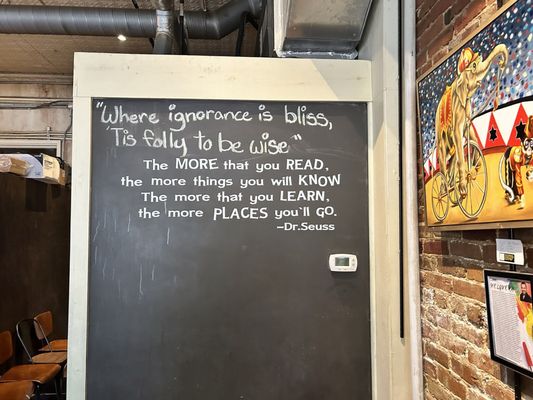 "Where ignorance is bliss,
'Tis folly to be wise"
The MORE that you READ,
the more things you will KNOW
The more that you LEARN,
the more PLACES you'll GO.
–Dr.Seuss